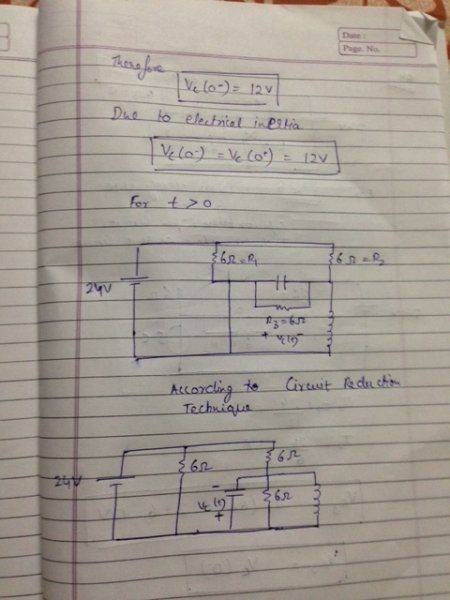 Date :
Page. No.
Therefore
Vc(0-) = 12V
Due to electrical inertia
Vc(0-) = Vc(0+) = 12V
For t > 0
6Ω=R1
6Ω=R2
24V
R3=6Ω
+ Vc(t) -
According to Circuit Reduction
Technique
6Ω
6Ω
24V
-
Vc(t)
+
6Ω